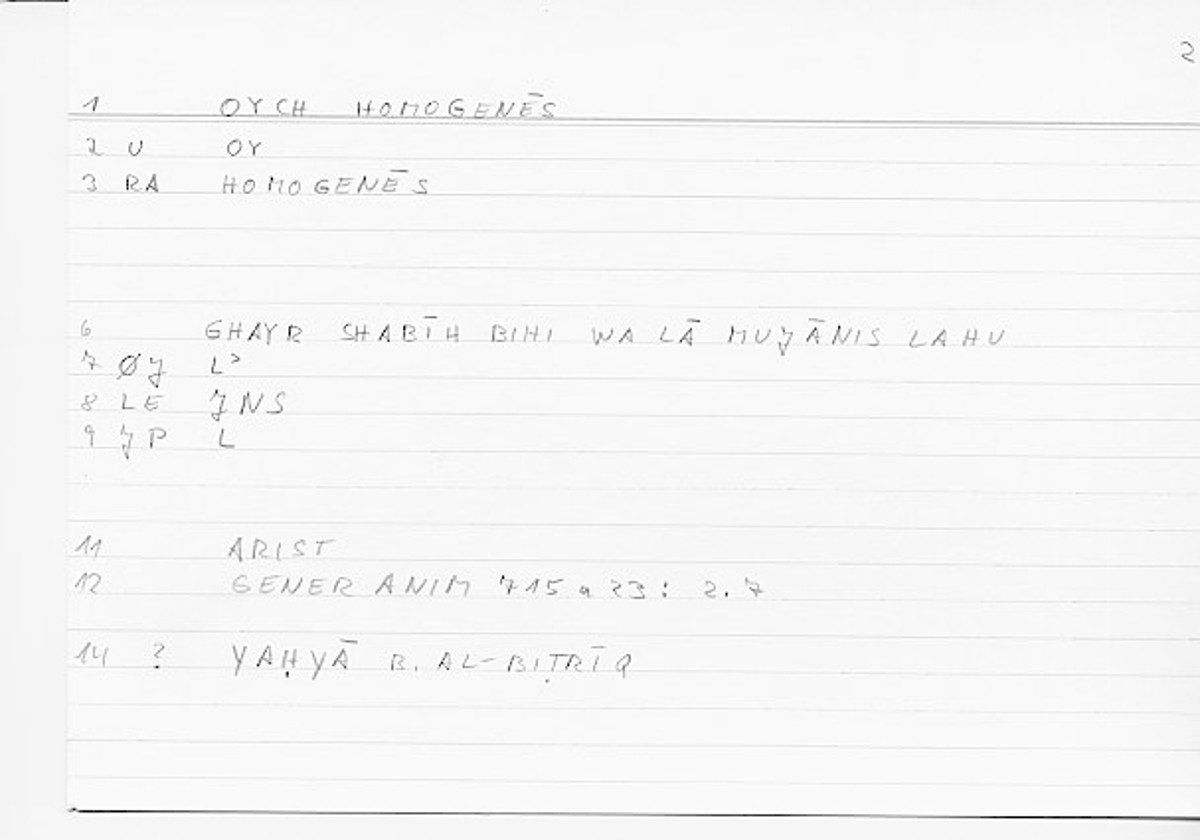 2
1 OYCH HOMOGENĒS
2 U OY
3 RA HOMOGENĒS
6 GHAYR SHABĪH BIHI WA LĀ MUJĀNIS LAHU
7 ØJ Lʾ
8 LE JNS
9 JP L
11 ARIST
12 GENER ANIM 715 a 23 : 2.7
14 ? YAḤYĀ B. AL-BIṬRĪQ